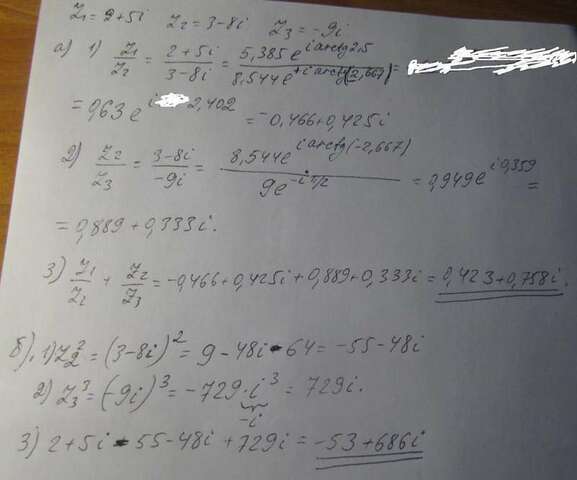 z₁ = 2+5i z₂ = 3-8i z₃ = -9i
а) 1) z₁/z₂ = (2+5i)/(3-8i) = 5,385 e^(i arctg 2,5) / 8,544 e^(i arctg(-2,667)) =
= 0,63 e^(i 2,402) = -0,466+0,425i
2) z₂/z₃ = (3-8i)/(-9i) = 8,544 e^(i arctg(-2,667)) / 9e^(-iπ/2) = 0,949 e^(i 0,359) =
= 0,889 + 0,333i.
3) z₁/z₂ + z₂/z₃ = -0,466+0,425i+0,889+0,333i = 0,423+0,758i.
б). 1) z₂² = (3-8i)² = 9-48i-64 = -55-48i
2) z₃³ = (-9i)³ = -729·i³ = 729i.
-i
3) 2+5i-55-48i+729i = -53+686i